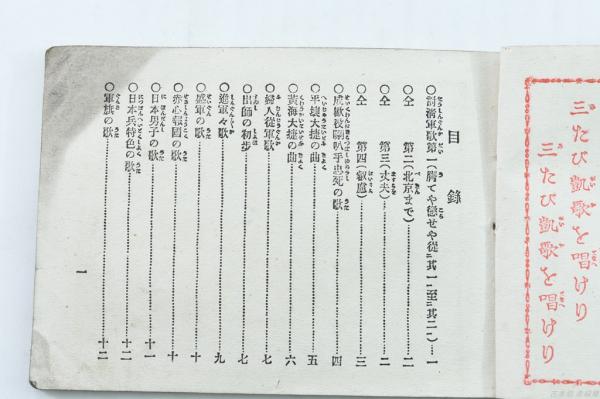 三たび凱歌を唱けり
三たび凱歌を唱けり
目録
○討淸軍歌第一(膺てや懲せや從其一至其二)…一
○仝 第二(北京まで)…二
○仝 第三(丈夫)…二
○仝 第四(叡慮)…三
○成歡役喇叭手忠死の歌…四
○平壤大捷の曲…五
○黃海大捷の曲…六
○婦人從軍歌…七
○出師の初步…七
○進軍々歌…九
○盛軍の歌…十
○赤心報國の歌…十
○日本男子の歌…十一
○日本兵特色の歌…十二
○軍旗の歌…十二
一